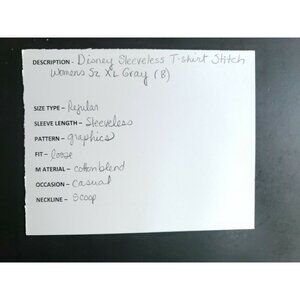 DESCRIPTION - Disney Sleeveless T-shirt Stitch
Womens Sz XL Gray (B)
SIZE TYPE - Regular
SLEEVE LENGTH - Sleeveless
PATTERN - graphics
FIT - loose
MATERIAL - cotton blend
OCCASION - Casual
NECKLINE - Scoop